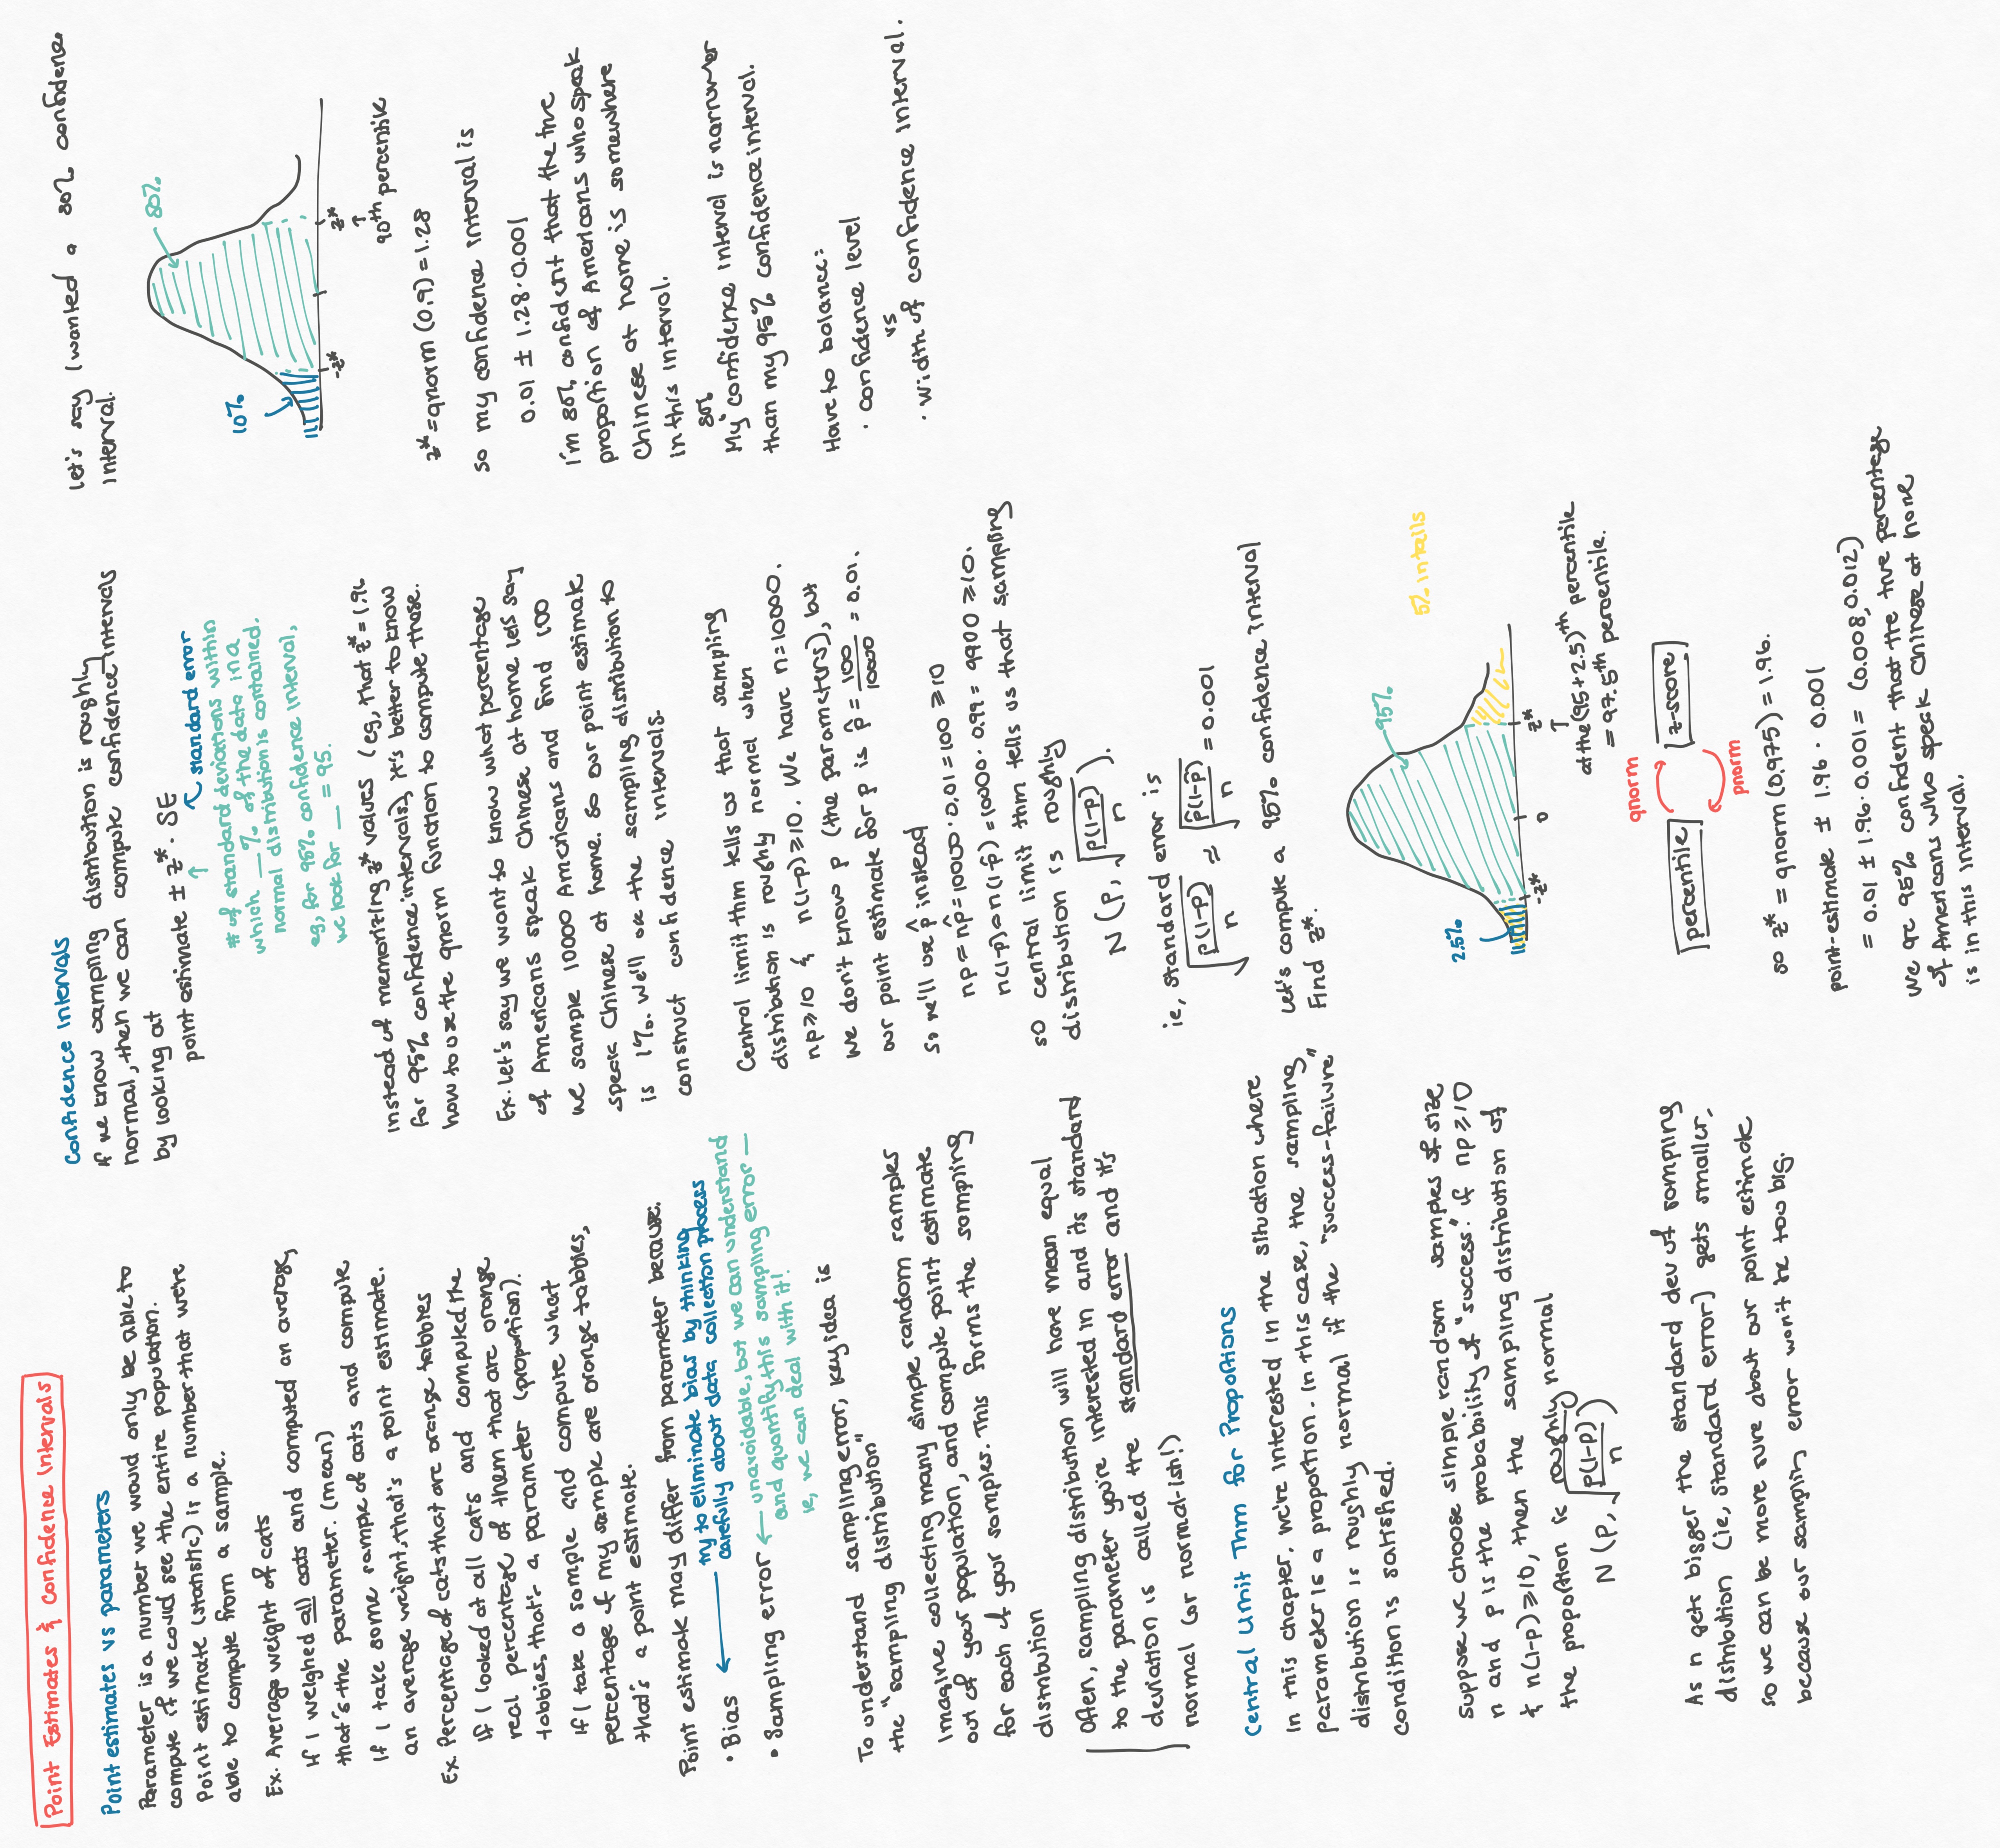 Point Estimates & Confidence Intervals
Point estimates vs parameters
Parameter is a number we would only be able to
compute if we could see the entire population.
Point estimate (statistic) is a number that we're
able to compute from a sample.
Ex. Average weight of cats
If I weighed all cats and computed an average,
that's the parameter. (mean)
If I take some sample of cats and compute
an average weight, that's a point estimate.
Ex. Percentage of cats that are orange tabbies
If I looked at all cats and computed the
real percentage of them that are orange
tabbies, that's a parameter (proportion).
If I take a sample and compute what
percentage of my sample are orange tabbies,
that's a point estimate.
Point estimate may differ from parameter because:
• Bias ← try to eliminate bias by thinking
carefully about data collection process
• Sampling error ← unavoidable, but we can understand
and quantify this sampling error —
ie, we can deal with it!
To understand sampling error, key idea is
the "sampling distribution"
Imagine collecting many simple random samples
out of your population, and compute point estimate
for each of your samples. This forms the sampling
distribution
Often, sampling distribution will have mean equal
to the parameter you're interested in and its standard
deviation is called the standard error and it's
normal (or normal-ish!)
Central Limit Thm for Proportions
In this chapter, we're interested in the situation where
parameter is a proportion. In this case, the sampling
distribution is roughly normal if the "success-failure"
condition is satisfied.
Suppose we choose simple random samples of size
n and p is the probability of "success." if np ≥ 10
& n(1-p) ≥ 10, then the sampling distribution of
the proportion is roughly normal
N (p, √(p(1-p)/n))
As n gets bigger the standard dev of sampling
distribution (ie, standard error) gets smaller,
so we can be more sure about our point estimate
because our sampling error won't be too big.
Confidence Intervals
If we know sampling distribution is roughly
normal, then we can compute confidence intervals
by looking at
point estimate ± z* · SE
standard error
# of standard deviations within
which __% of the data in a
normal distribution is contained.
eg, for 95% confidence interval,
we look for __ = 95.
Instead of memorizing z* values (eg, that z* = 1.96
for 95% confidence intervals), it's better to know
how to use the qnorm function to compute these.
Ex. Let's say we want to know what percentage
of Americans speak Chinese at home let's say
we sample 10000 Americans and find 100
speak Chinese at home. So our point estimate
is 1%. We'll use the sampling distribution to
construct confidence intervals.
Central limit thm tells us that sampling
distribution is roughly normal when
np ≥ 10 & n(1-p) ≥ 10. We have n = 10000.
We don't know p (the parameters), but
our point estimate for p is p̂ = 100/10000 = 0.01.
So we'll use p̂ instead
np ≈ np̂ = 10000 · 0.01 = 100 ≥ 10
n(1-p) ≈ n(1-p̂) = 10000 · 0.99 = 9900 ≥ 10.
so central limit thm tells us that sampling
distribution is roughly
N (p, √(p(1-p)/n)).
ie, standard error is
√(p(1-p)/n) ≈ √(p̂(1-p̂)/n) = 0.001
Let's compute a 95% confidence interval
Find z*.
95%
5% in tails
2.5%
-z* 0 z*
↑
at the (95+2.5)th percentile
= 97.5th percentile.
qnorm
percentile z-score
pnorm
so z* = qnorm (0.975) = 1.96.
point-estimate ± 1.96 · 0.001
= 0.01 ± 1.96 · 0.001 = (0.008, 0.012)
We are 95% confident that the true percentage
of Americans who speak Chinese at home
is in this interval.
Let's say I wanted a 80% confidence
interval.
80%
10%
-z* z*
↑
90th percentile
z* = qnorm (0.9) = 1.28
so my confidence interval is
0.01 ± 1.28 · 0.001
I'm 80% confident that the true
propotion of Americans who speak
Chinese at home is somewhere
in this interval.
80%
My confidence interval is narrower
than my 95% confidence interval.
Have to balance:
· confidence level
vs
· width of confidence interval.